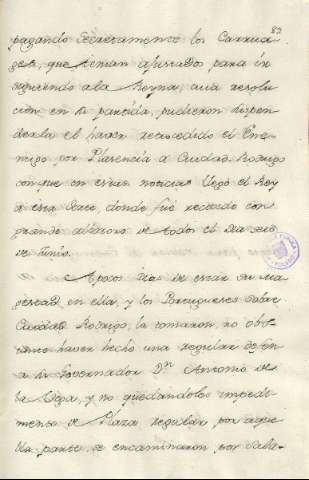 82
pagando secretamente los Carrua
ges, que tenian ajustados para ir
siguiendo a la Reyna, cuia resolu
cion en su partida, pudieron suspen
derla el haver retrocedido el Ene
migo por Plasencia a Ciudad Rodrigo
con que en estas noticias llegó el Rey
a esta Corte, donde fué recivido con
grande alborozo de todos el dia seis
de Junio.
Apocos dias de estar su Ma
gestad en ella, y los Portugueses sobre
Ciudad Rodrigo, la tomaron, no obs
tante haver hecho una regular defen
sa su Governador Dn Antonio de
la Vega, y no quedandoles impedi
mento de Plaza regular por aque
lla parte, se encaminaron, por Sala-